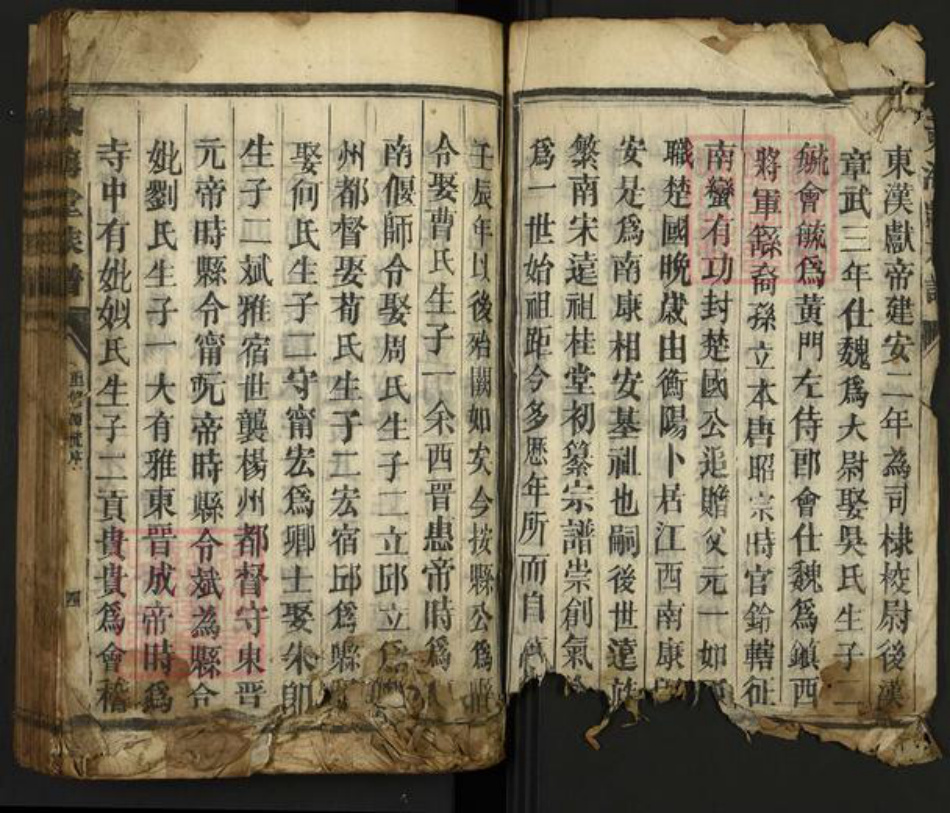 東漢獻帝建安二年為司棣校尉後漢
章武三年仕魏爲大尉娶吳氏生子二
毓會毓爲黃門左侍郎會仕魏爲鎮西
將軍繇裔孫立本唐昭宗時官鈐轄征
南蠻有功封楚國公追贈父元一如
職楚國晚歲由衡陽卜居江西南康
安是爲南康相安基祖也嗣後世逺
繁南宋逺祖桂堂初纂宗譜崇創氣
爲一世始祖距今多歷年所而自
壬辰年以後殆闕如矣今按縣公爲
令娶曹氏生子一余西晋愚帝時爲
南偃師令娶周氏生子二立邱立
州都督娶荀氏生子二宏宿邱爲縣
娶何氏生子二守甯宏爲卿士娶朱
生子二斌雅宿世襲楊州都督守東晋
元帝時縣令甯元帝時縣令斌為縣令
妣劉氏生子一大有雅東晋成帝時爲
寺中有妣姒氏生子二貢貴貴爲會稽
四